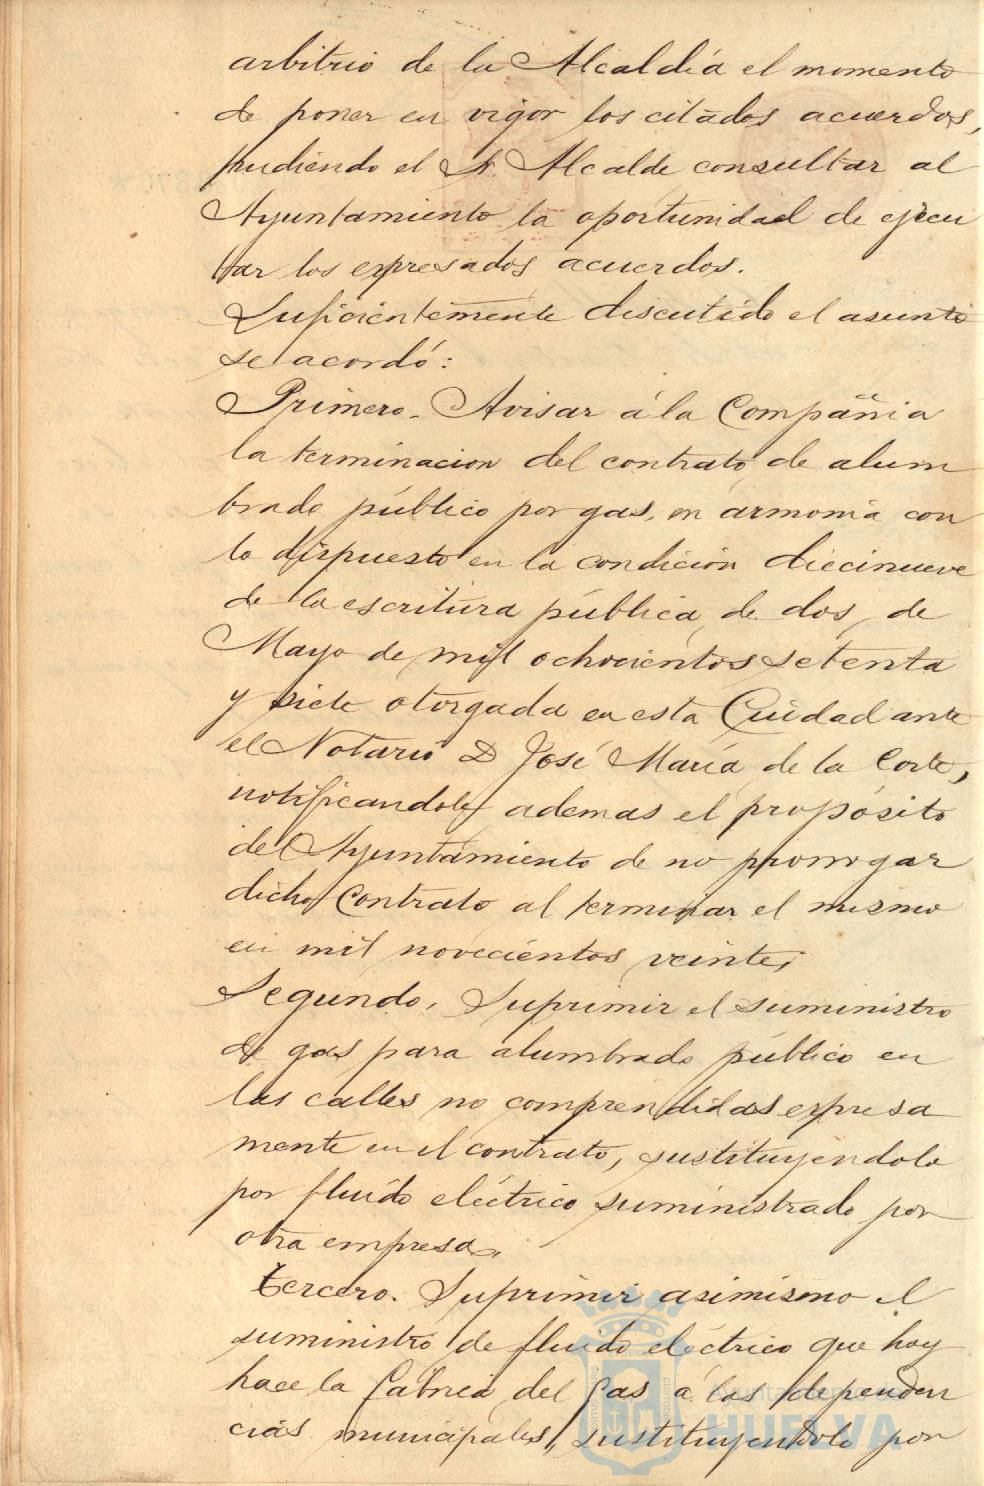 arbitrio de la Alcaldía el momento
de poner en vigor los citados acuerdos,
pudiendo el Sr. Alcalde consultar al
Ayuntamiento la oportunidad de ejecu
tar los expresados acuerdos.
Suficientemente discutido el asunto
se acordó:
Primero. Avisar á la Compañia
la terminacion del contrato de alum
brado público por gas, en armonia con
lo dispuesto en la condición diecinueve
de la escritura pública de dos de
Mayo de mil ochocientos setenta
y siete otorgada en esta Ciudad ante
el Notario D José María de la Corte,
notificandole ademas el propósito
del Ayuntamiento de no prorrogar
dicho Contrato al terminar el mismo
en mil novecientos veinte;
Segundo. Suprimir el suministro
de gas para alumbrado público en
las calles no comprendidas expresa
mente en el contrato, sustituyendolo
por fluido eléctrico suministrado por
otra empresa.
Tercero. Suprimir asimismo el
suministro de fluido eléctrico que hoy
hace la Fabrica del Gas á las dependen
cias municipales, sustituyendolo por
Ayuntamiento de
HUELVA